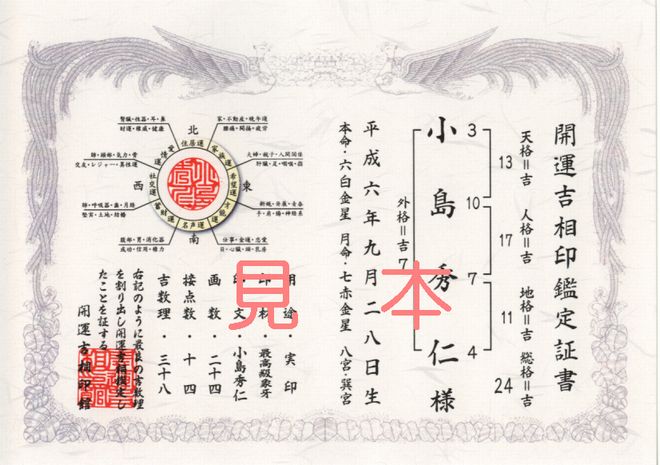 開運吉相印鑑定証書
天格=吉 人格=吉 地格=吉 総格=吉
13 17 11 24
3 10 7 4
小島秀仁様
外格=吉
7
平成六年九月二八日生
本命・六白金星 月命・七赤金星 八宮・巽宮
見本
用途・実印
印材・最高級象牙
印文・小島秀仁
画数・二十四
接点数・十四
吉数理・三十八
右記のように最良の吉数理
を割り出し開運吉相推定し
たことを証する
開運吉相印館
北
東
南
西
腎臓・性器・耳・鼻
財運・権威・健康
家・不動産・晩年運
腰痛・関節・疲労
夫婦・親子・人間関係
肝臓・足・咽喉・指
交友・レジャー・異性運
肺・呼吸器・歯・月路
堅実・土地・結婚
腹部・胃・消化器
成功・信用・権力
仕事・金運・恋愛
目・心臓・頭・乳房
住居運
家庭運
希望運
名声運
蓄財運
社交運
愛情運